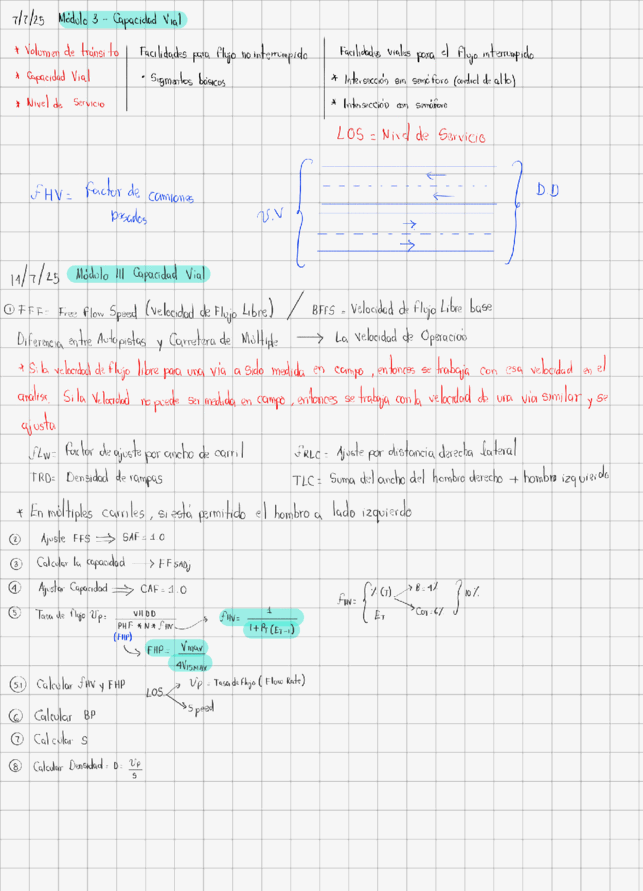 7/7/25 Módulo 3 - Capacidad Vial
* Volumen de tránsito
* Capacidad Vial
* Nivel de Servicio
Facilidades para flujo no interrumpido
• Segmentos básicos
Facilidades viales para el flujo interrumpido
* Intersección sin semáforo (control de alto)
* Intersección con semáforo
LOS = Nivel de Servicio
fHV = Factor de camiones pesados
V.V
DD
14/7/25 Módulo III Capacidad Vial
① FFF- Free Flow Speed (Velocidad de Flujo Libre) / BFFS = Velocidad de Flujo Libre base
Diferencia entre Autopistas y Carretera de Múltiple → La velocidad de Operación
* Si la velocidad de flujo libre para una vía a sido medida en campo, entonces se trabaja con esa velocidad en el
analisis. Si la velocidad no puede ser medida en campo, entonces se trabaja con la velocidad de una via similar y se
ajusta
fLW= Factor de ajuste por ancho de carril
fRLC= Ajuste por distancia derecha lateral
TRD= Densidad de rampas
TLC= Suma del ancho del hombro derecho + hombro izquierdo
* En múltiples carriles, si está permitido el hombro a lado izquierdo
② Ajuste FFS ⟹ SAF = 1.0
③ Calcular la capacidad → FFSAdj
④ Ajustar Capacidad ⟹ CAF = 1.0
fHV= { % (T) → B=4% → Co1=6% } 10%
ET
⑤ Tasa de flujo Vp = VHDD / PHF * N * fHV → fHV= 1 / 1 + PT (ET-1)
(FHP) → FHP= VMAX / 4V15MAX
(5.1) Calcular fHV y FHP
LOS → Vp = Tasa de flujo (Flow Rate)
→ Speed
⑥ Calcular BP
⑦ Calcular S
⑧ Calcular Densidad = D = Vp / S